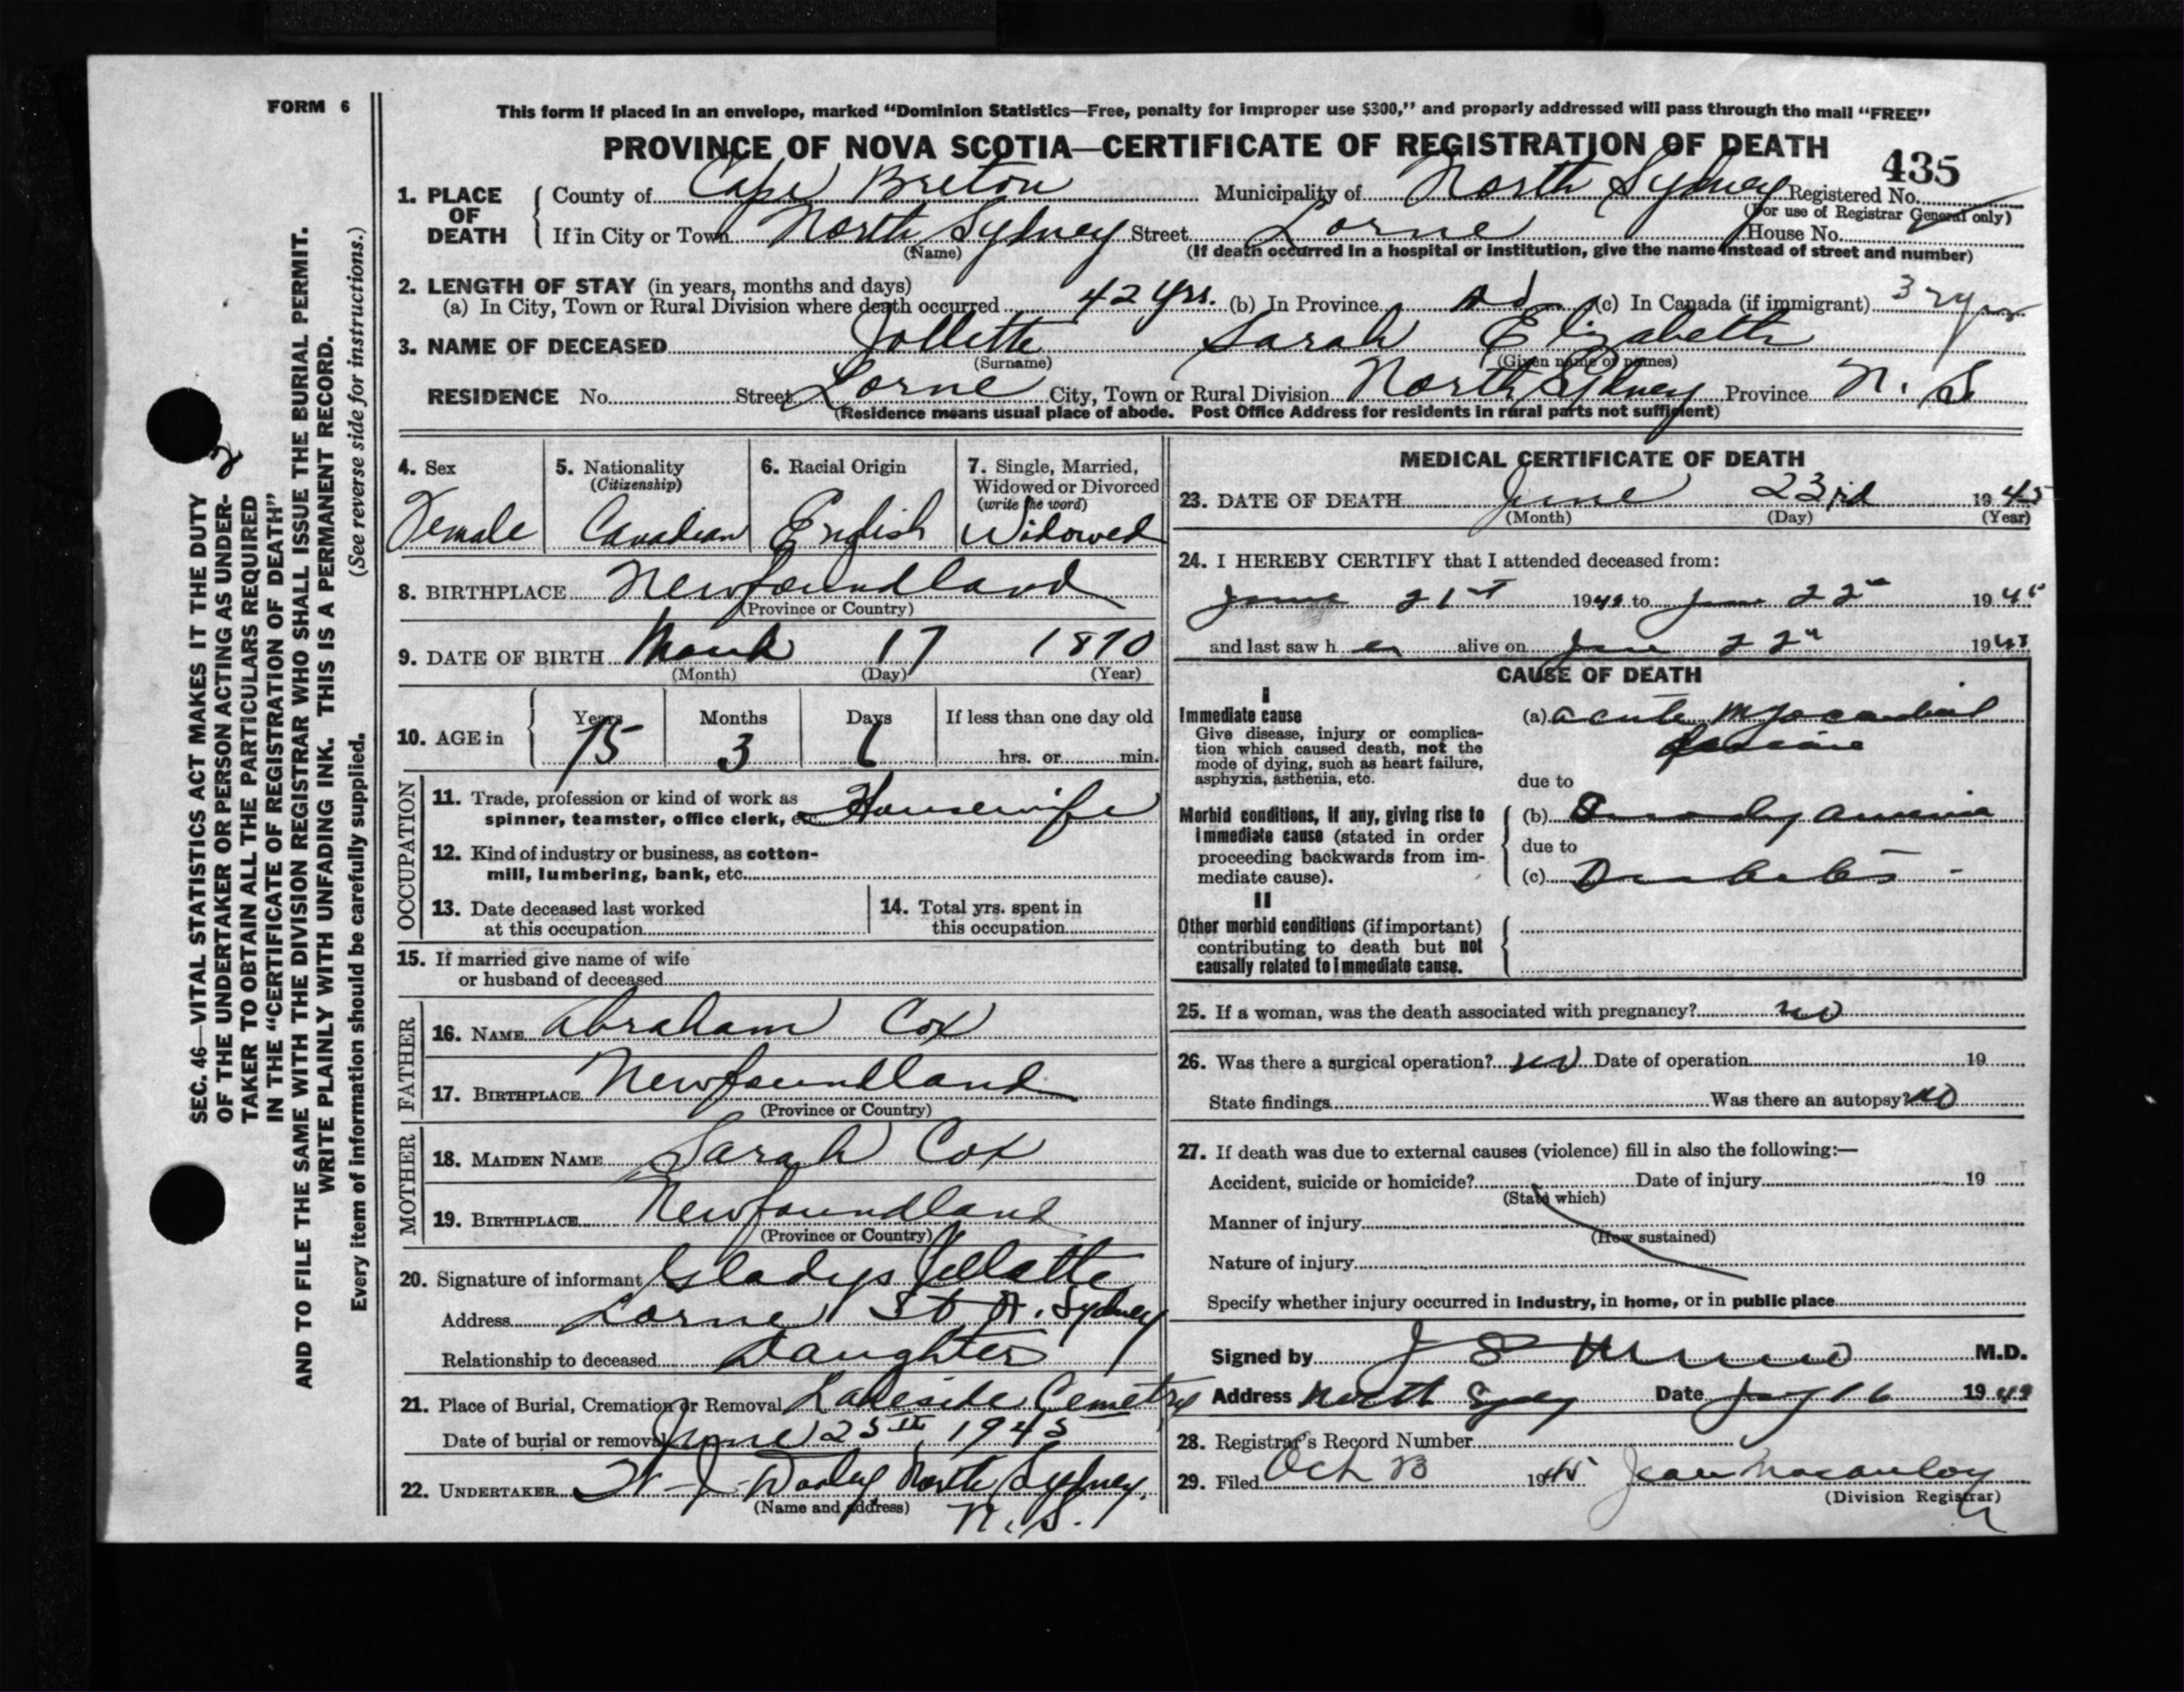 FORM 6
This form if placed in an envelope, marked “Dominion Statistics—Free, penalty for improper use $300,” and properly addressed will pass through the mail “FREE”
PROVINCE OF NOVA SCOTIA—CERTIFICATE OF REGISTRATION OF DEATH
435
1. PLACE OF DEATH
County of Cape Breton Municipality of North Sydney Registered No.
(For use of Registrar General only)
If in City or Town North Sydney Street Lorne House No.
(Name) (If death occurred in a hospital or institution, give the name instead of street and number)
2. LENGTH OF STAY (in years, months and days)
(a) In City, Town or Rural Division where death occurred 42 yrs. (b) In Province (c) In Canada (if immigrant)
3. NAME OF DECEASED Jollette Sarah Elizabeth
(Surname) (Given name or names)
RESIDENCE No. Street Lorne City, Town or Rural Division North Sydney Province N. S
(Residence means usual place of abode. Post Office Address for residents in rural parts not sufficient)
4. Sex
Female
5. Nationality
(Citizenship)
Canadian
6. Racial Origin
English
7. Single, Married,
Widowed or Divorced
(write the word)
Widowed
8. BIRTHPLACE Newfoundland
(Province or Country)
9. DATE OF BIRTH March 17 1870
(Month) (Day) (Year)
10. AGE in
Years Months Days If less than one day old
75 3 6 hrs. or min.
OCCUPATION
11. Trade, profession or kind of work as
spinner, teamster, office clerk, etc. Housewife
12. Kind of industry or business, as cotton-
mill, lumbering, bank, etc.
13. Date deceased last worked
at this occupation
14. Total yrs. spent in
this occupation
15. If married give name of wife
or husband of deceased
FATHER
16. NAME Abraham Cox
17. BIRTHPLACE Newfoundland
(Province or Country)
MOTHER
18. MAIDEN NAME Sarah Cox
19. BIRTHPLACE Newfoundland
(Province or Country)
20. Signature of informant Gladys Jollotte
Address Lorne St N. Sydney
Relationship to deceased Daughter
21. Place of Burial, Cremation or Removal Lakeside Cemetry
Date of burial or removal June 25th 1945
22. UNDERTAKER North Sydney,
(Name and address) N. S.
MEDICAL CERTIFICATE OF DEATH
23. DATE OF DEATH June 23rd 1945
(Month) (Day) (Year)
24. I HEREBY CERTIFY that I attended deceased from:
June 21st 1945 to June 22nd 1945
and last saw her alive on June 22n 1945
CAUSE OF DEATH
I
Immediate cause
Give disease, injury or complica-
tion which caused death, not the
mode of dying, such as heart failure,
asphyxia, asthenia, etc.
(a) acute Myocardial
failure
due to
Morbid conditions, if any, giving rise to
immediate cause (stated in order
proceeding backwards from im-
mediate cause).
(b)
due to
(c) Diabetes -
II
Other morbid conditions (if important)
contributing to death but not
causally related to immediate cause.
25. If a woman, was the death associated with pregnancy? no
26. Was there a surgical operation? no Date of operation 19
State findings Was there an autopsy? no
27. If death was due to external causes (violence) fill in also the following:—
Accident, suicide or homicide? Date of injury 19
(State which)
Manner of injury
(How sustained)
Nature of injury
Specify whether injury occurred in industry, in home, or in public place
Signed by J S Munro M.D.
Address North Sydney Date 16 19
28. Registrar's Record Number
29. Filed Oct 1945 Jean Macaulay
(Division Registrar)
SEC. 46—VITAL STATISTICS ACT MAKES IT THE DUTY
OF THE UNDERTAKER OR PERSON ACTING AS UNDER-
TAKER TO OBTAIN ALL THE PARTICULARS REQUIRED
IN THE “CERTIFICATE OF REGISTRATION OF DEATH”
AND TO FILE THE SAME WITH THE DIVISION REGISTRAR WHO SHALL ISSUE THE BURIAL PERMIT.
WRITE PLAINLY WITH UNFADING INK. THIS IS A PERMANENT RECORD.
Every item of information should be carefully supplied. (See reverse side for instructions.)
2